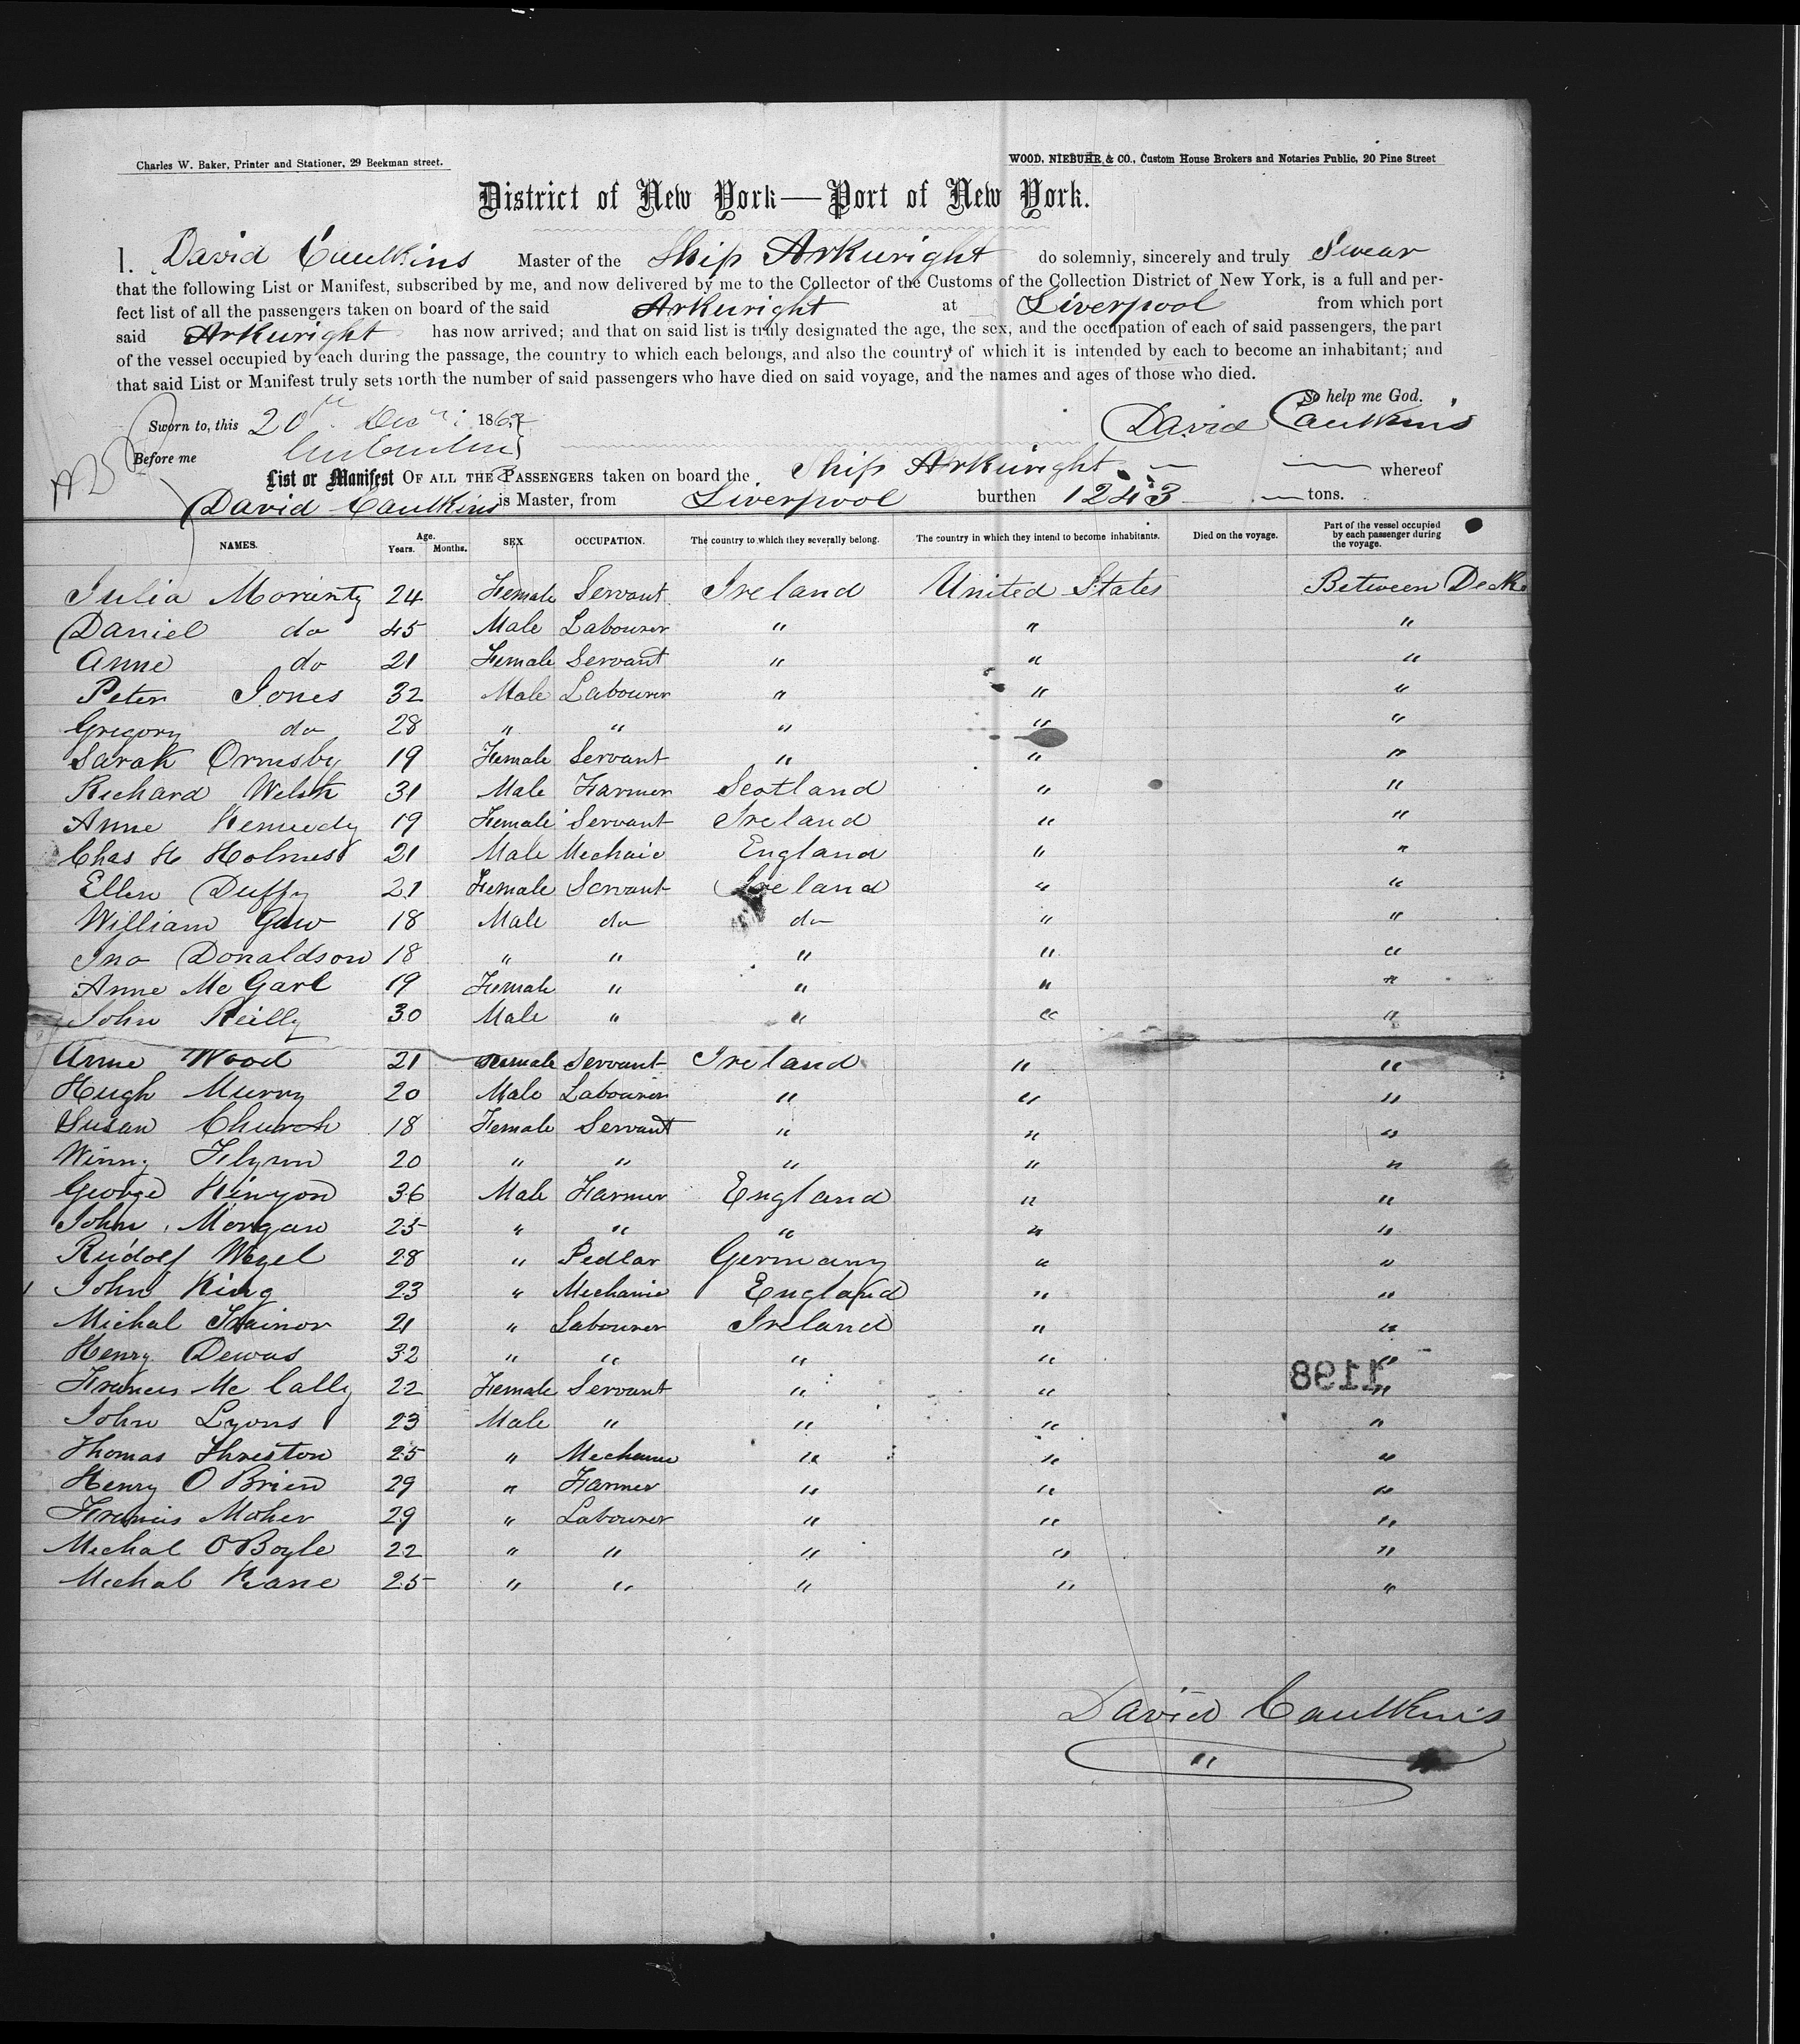 Charles W. Baker, Printer and Stationer, 29 Beekman street. WOOD, NIEBUHR & CO., Custom House Brokers and Notaries Public, 20 Pine Street
District of New York—Port of New York.
I. David Caulkins Master of the Ship Arkwright do solemnly, sincerely and truly Swear
that the following List or Manifest, subscribed by me, and now delivered by me to the Collector of the Customs of the Collection District of New York, is a full and per-
fect list of all the passengers taken on board of the said Arkwright at Liverpool from which port
said Arkwright has now arrived; and that on said list is truly designated the age, the sex, and the occupation of each of said passengers, the part
of the vessel occupied by each during the passage, the country to which each belongs, and also the country of which it is intended by each to become an inhabitant; and
that said List or Manifest truly sets forth the number of said passengers who have died on said voyage, and the names and ages of those who died.
So help me God.
Sworn to, this 20th Dec 186 David Caulkins
Before me
List or Manifest OF ALL THE PASSENGERS taken on board the Ship Arkwright whereof
David Caulkins is Master, from Liverpool burthen 1243 tons.
NAMES. Age. Years. Months. SEX OCCUPATION. The country to which they severally belong. The country in which they intend to become inhabitants. Died on the voyage. Part of the vessel occupied by each passenger during the voyage.
Julia Moriarity 24 Female Servant Ireland United States Between Decks
Daniel do 45 Male Labourer " " "
Anne do 21 Female Servant " " "
Peter Jones 32 Male Labourer " " "
Gregory do 28 " " " " "
Sarah Ormsby 19 Female Servant " " "
Richard Welsh 31 Male Farmer Scotland " "
Anne Kennedy 19 Female Servant Ireland " "
Chas H Holmes 21 Male Mechaic England " "
Ellen Duffy 21 Female Servant Ireland " "
William Gaw 18 Male do do " "
Jno Donaldson 18 " " " " "
Anne Mc Garl 19 Female " " " "
John Reilly 30 Male " " " "
Anne Wood 21 Female Servant Ireland " "
Hugh Murry 20 Male Labourer " " "
Susan Church 18 Female Servant " " "
Winny Flynn 20 " " " " "
George Kinyon 36 Male Farmer England " "
John Morgan 25 " " " " "
Rudolf Wezel 28 " Pedlar Germany " "
John King 23 " Mechanic England " "
Michal Trainor 21 " Labourer Ireland " "
Henry Dewas 32 " " " " "
1198
Frances Mc Cally 22 Female Servant " " "
John Lyons 23 Male " " " "
Thomas Threston 25 " Mechanic " " "
Henry O Brien 29 " Farmer " " "
Francis Moher 29 " Labourer " " "
Michal O Boyle 22 " " " " "
Michal Kane 25 " " " " "
David Caulkins
"